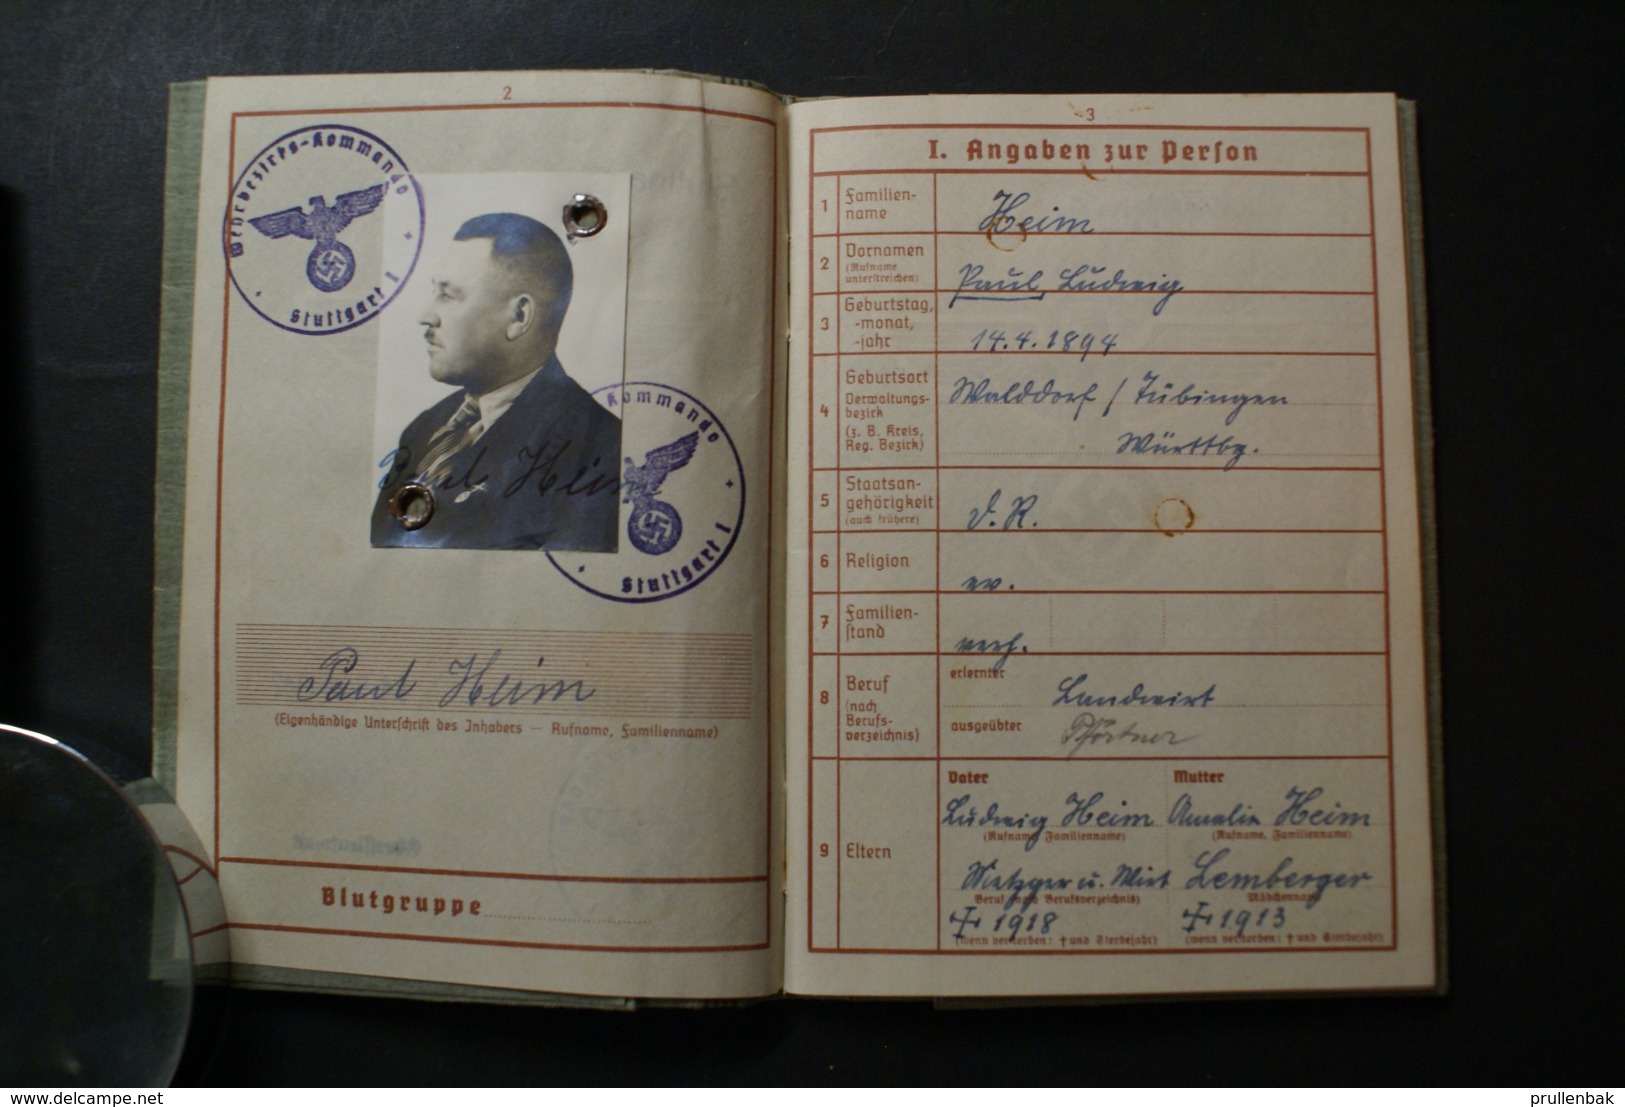 2
Wehrbezirks-Kommando
Stuttgart I
Paul Heim
Kommando
Stuttgart I
Paul Heim
(Eigenhändige Unterschrift des Inhabers — Rufname, Familienname)
Blutgruppe
3
I. Angaben zur Person
1 Familien-
name
Heim
2 Vornamen
(Rufname
unterstreichen)
Paul, Ludwig
3 Geburtstag,
-monat,
-jahr
14.4.1894
4 Geburtsort
Verwaltungs-
bezirk
(z. B. Kreis,
Reg. Bezirk)
Walddorf / Tübingen
Württbg.
5 Staatsan-
gehörigkeit
(auch frühere)
D.R.
6 Religion
ev.
7 Familien-
stand
verh.
8 Beruf
(nach
Berufs-
verzeichnis)
erlernter
Landwirt
ausgeübter
Pförtner
9 Eltern
Vater
Ludwig Heim
(Rufname, Familienname)
Metzger u. Wirt
Beruf (nach Berufsverzeichnis)
† 1918
(wenn verstorben: † und Sterbejahr)
Mutter
Amalie Heim
(Rufname, Familienname)
Lemberger
Mädchenname
† 1913
(wenn verstorben: † und Sterbejahr)
www.delcampe.net
prullenbak